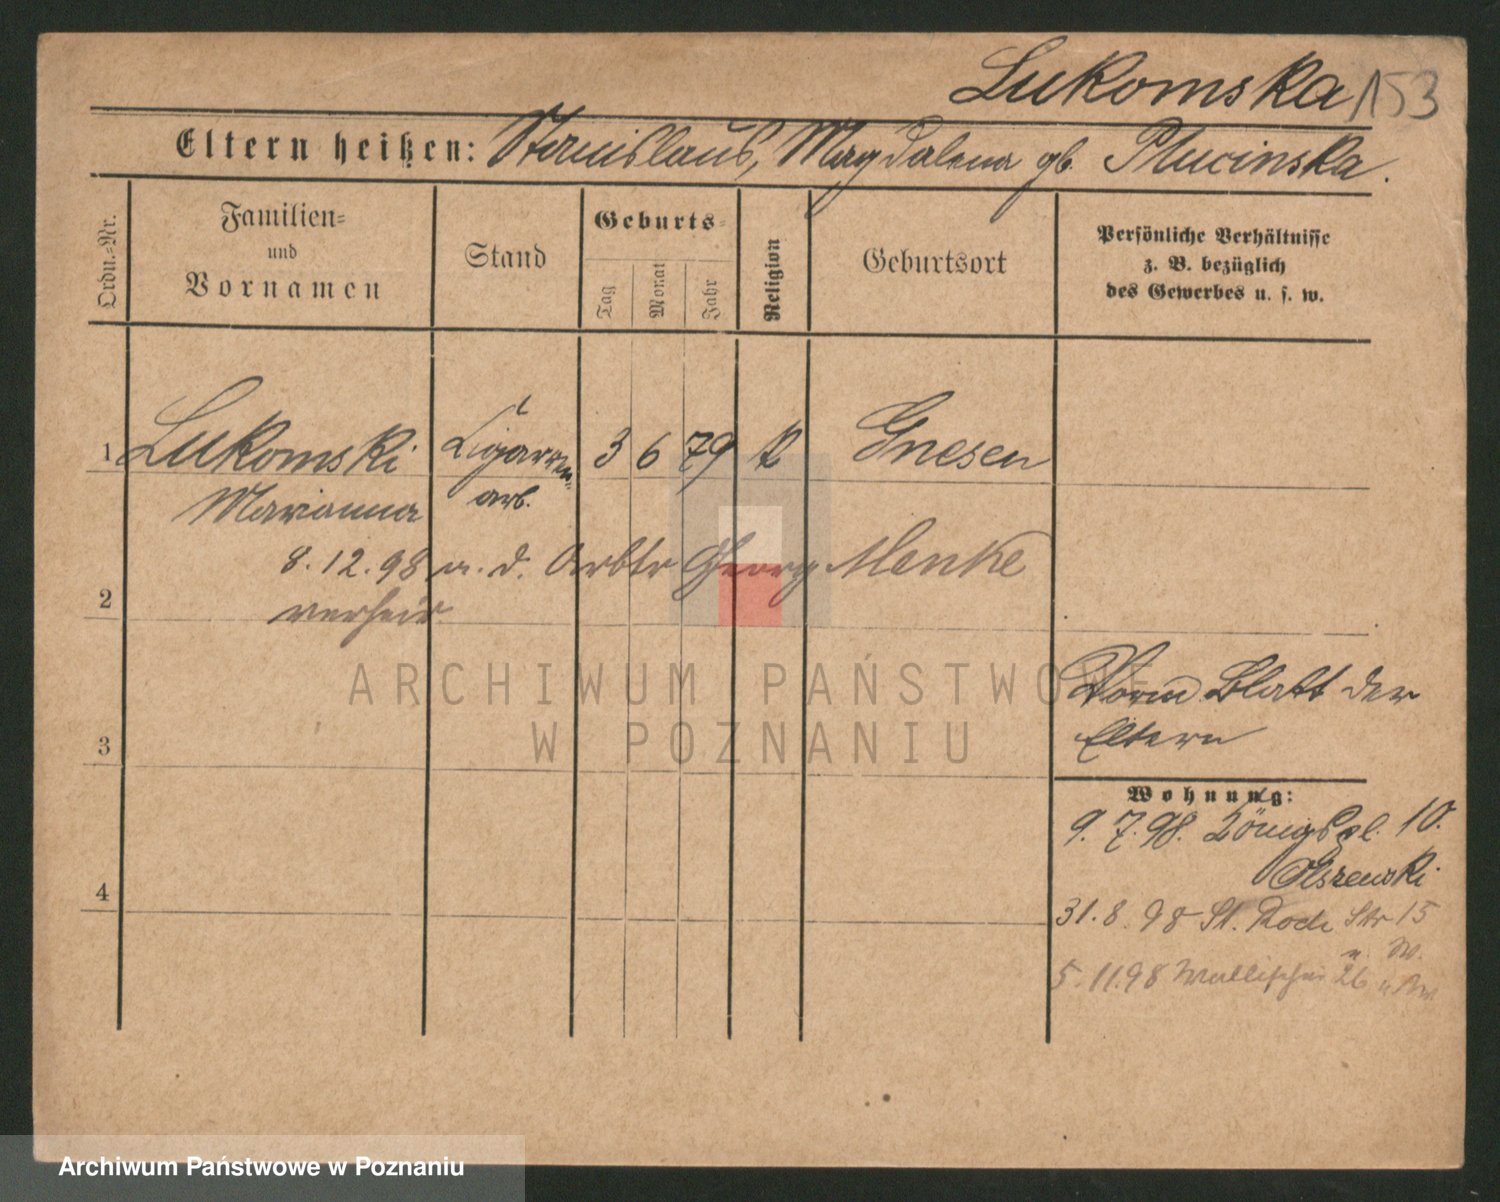 Lukomska 153
Eltern heißen: Stanislaus, Magdalena gb. Plucinska.
Ordn.-Nr.
Familien-
und
Vornamen
Stand
Geburts-
Tag
Monat
Jahr
Religion
Geburtsort
Persönliche Verhältnisse
z. B. bezüglich
des Gewerbes u. s. w.
1 Lukomski Cigarren- 3 6 79 k Gnesen
Marianna arb.
8.12.98 m. d. Arbtr Georg Menke
2 verheir.
ARCHIWUM PAŃSTWOWE
W POZNANIU
3
Vorm Blatt der
Eltern
Wohnung:
9.7.98. Königspl. 10.
Olszewski
4
31.8.98 St. Roch Str 15
u. W.
5.11.98 Wallischei 26
Archiwum Państwowe w Poznaniu